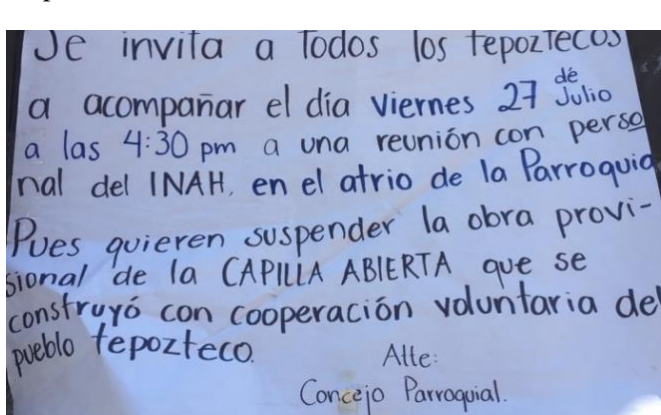 Se invita a Todos los tepoztecos
a acompañar el día Viernes 27 de Julio
a las 4:30 pm a una reunión con perso
nal del INAH, en el atrio de la Parroquia
Pues quieren suspender la obra provi-
sional de la CAPILLA ABIERTA que se
construyó con cooperación voluntaria del
pueblo tepozteco.
Atte:
Concejo Parroquial.